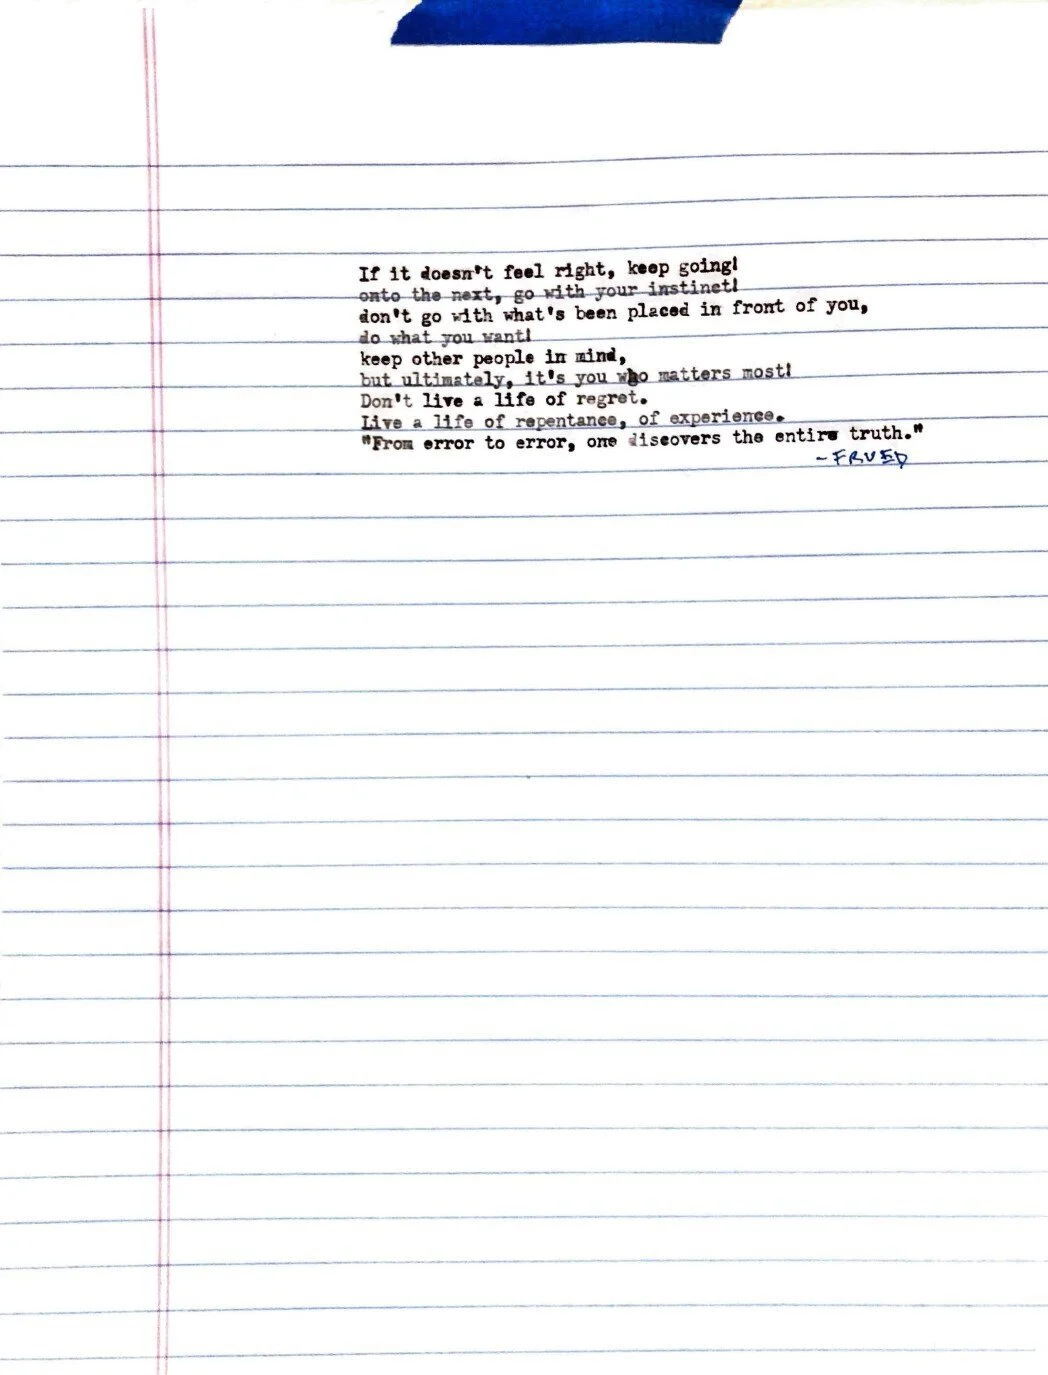 If it doesn't feel right, keep going!
onto the next, go with your instinct!
don't go with what's been placed in front of you,
do what you want!
keep other people in mind,
but ultimately, it's you who matters most!
Don't live a life of regret.
Live a life of repentance, of experience.
"From error to error, one discovers the entire truth."
- FRUED